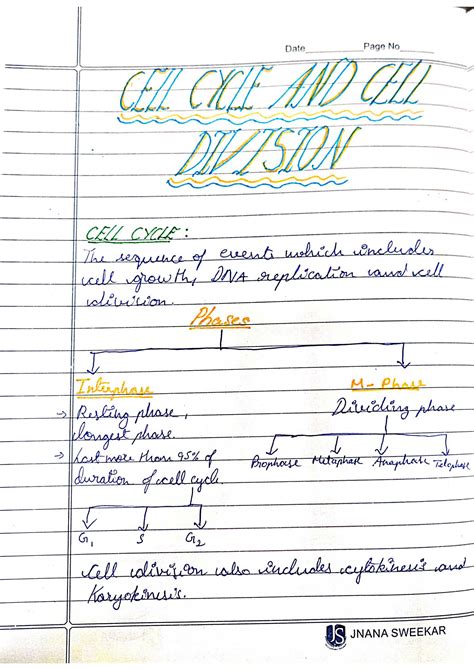 Date Page No
CELL CYCLE AND CELL
DIVISION
CELL CYCLE :
The sequence of events which includes
cell growth, DNA replication and cell
division.
Phases
Interphase M - Phase
→ Resting phase, Dividing phase
longest phase.
→ Last more than 95% of Prophase Metaphase Anaphase Telophase
duration of cell cycle.
G₁ S G₂
Cell division also includes cytokinesis and
Karyokinesis.
JS JNANA SWEEKAR